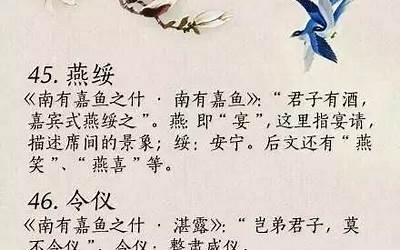 45. 燕绥
《南有嘉鱼之什 · 南有嘉鱼》：“君子有酒，
嘉宾式燕绥之”。燕：即“宴”，这里指宴请，
描述席间的景象；绥：安宁。后文还有“燕
笑”、“燕喜”等。
46. 令仪
《南有嘉鱼之什 · 湛露》：“岂弟君子，莫
不令仪”。令仪：整肃威仪。